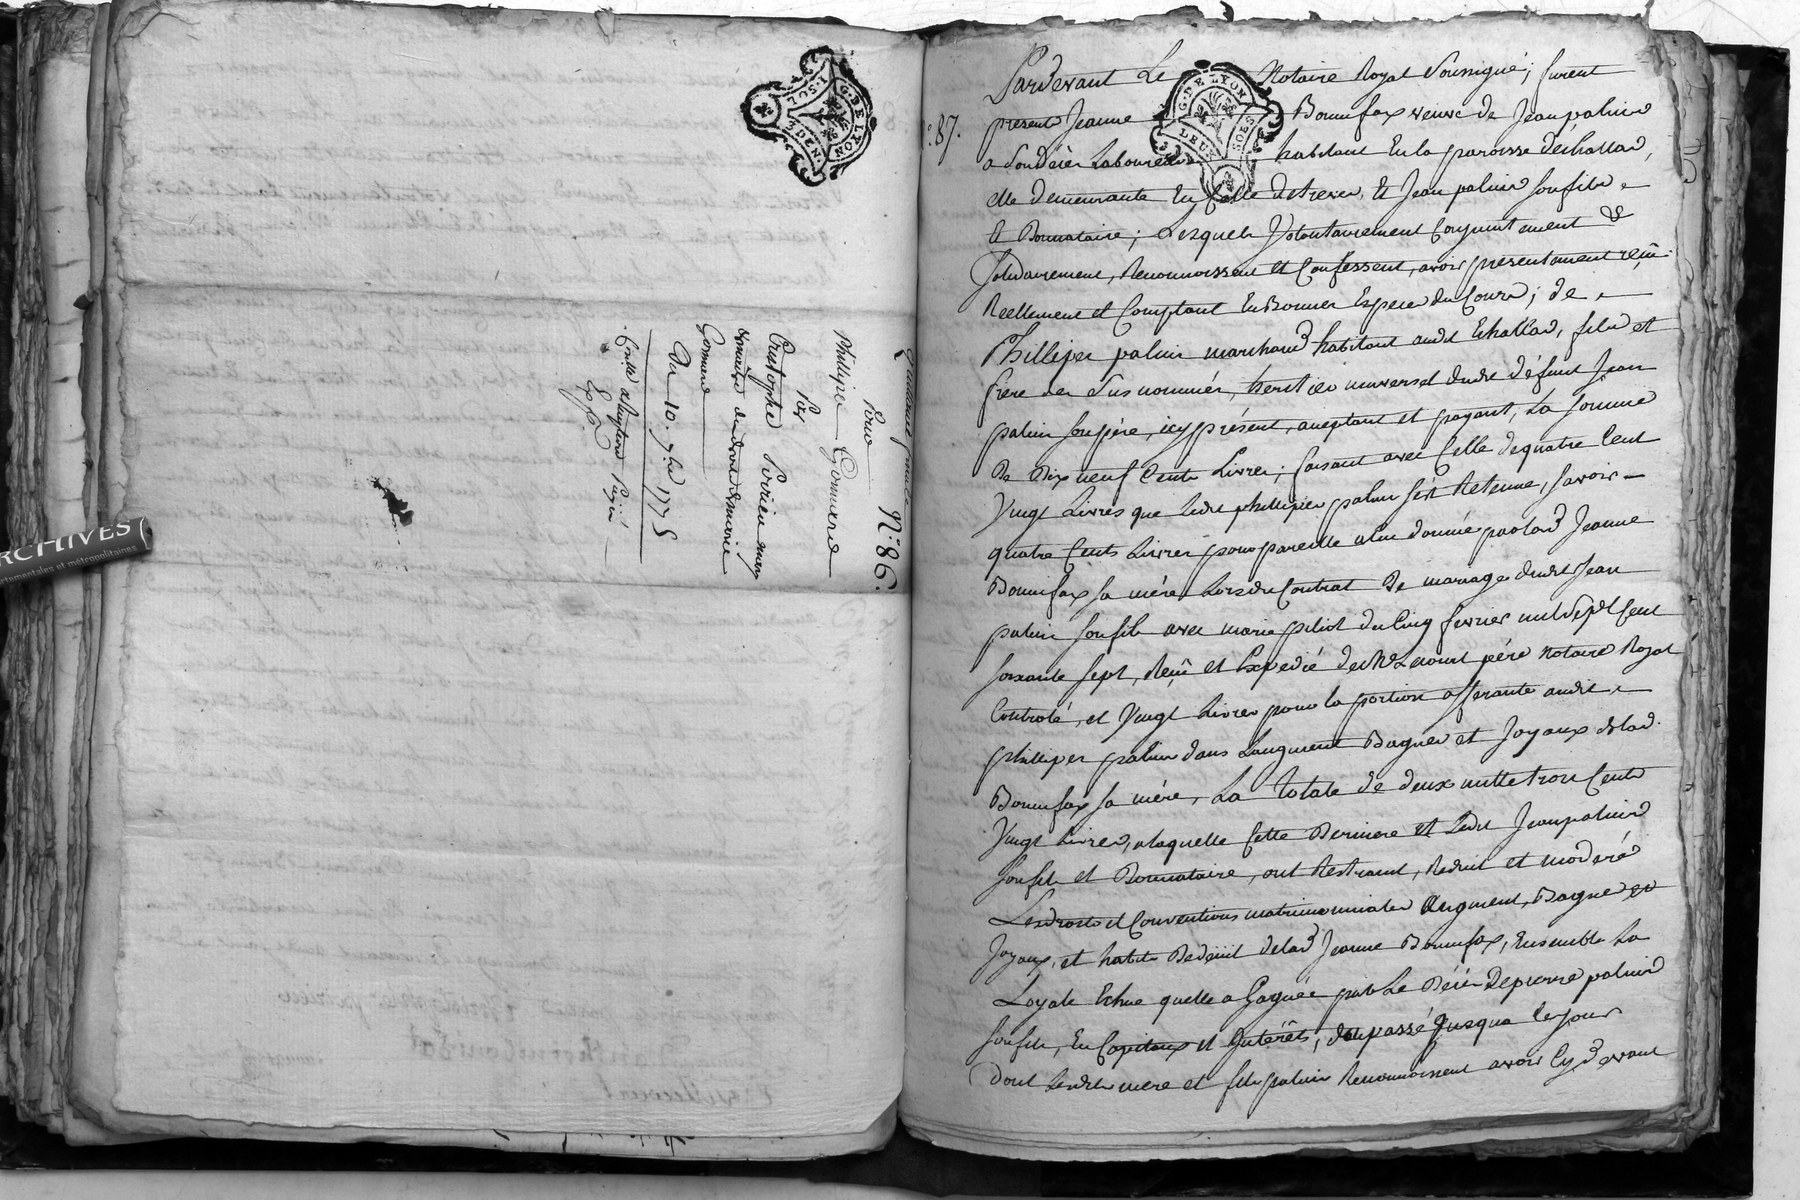 G. DE LYON
1. SOL
3 DEN.
N.° 86.
Quittance finale
Pour
Philliper Gonnerd
Par
Cristophe Poirieu
Gonnerd
Au 10. 7bre 1775
ARCHIVES
départementales et métropolitaines
.87.
G. DE LYON
DEUX SOLS
Pardevant Le Notaire Royal Soussigné; furent
present Jeanne Bonnefax veuve de Jean palin
a Son décès Laboureur habitant En la paroisse déchallas,
elle demeurante En Celle de treves, Et Jean palin son fils
& Donnataire; Lesquels Volontairement Conjointement &
Solidairement, Reconnoissent et Confessent, avoir présentement reçu
Reellement et Comptant En Bonnes Espece du Cours; de
Philliper palin marchand habitant audt Echallas, fils et
frere des Susnommés, heritier universel dudt défunt Jean
palin Son père, icy présent, aceptant et payant, La Somme
De Dix neuf Cents Livres; faisant avec Celle de quatre Cent
Vingt Livres que Ledt philliper palin S'est Retenue, Savoir
quatre Cents Livres pour pareille a lui donnée par lad Jeanne
Bonnefax Sa mére Lors du Contrat De mariage dudt Jean
palin Son fils avec marie piliot du Cinq fevrier mil Sept Cent
soixante sept, Reçu et Expedié de Me père Notaire Royal
Controlé, et Vingt Livres pour la portion afferante audit
philliper palin dans Laugment Bagues et Joyaux de lad.
Bonnefax Sa mére, La Totale de deux mille trois Cents
Vingt Livres, a laquelle Cette Derniere et Ledt Jean palin
Son fils et Donnataire, ont Restraint, Reduit et moderé
Les droits et Conventions matrimoniales Augment, Bagues et
Joyaux, et habits De deüil de lad Jeanne Bonnefax, Ensemble La
Loyale Echue quelle a Gagnée par Le Décès De pierre palin
Son fils, En Capitaux et Intérêts, du passé Jusqua Ce jour
Dont Lesdits mere et fils palin Reconnoissent avoir Cy devant